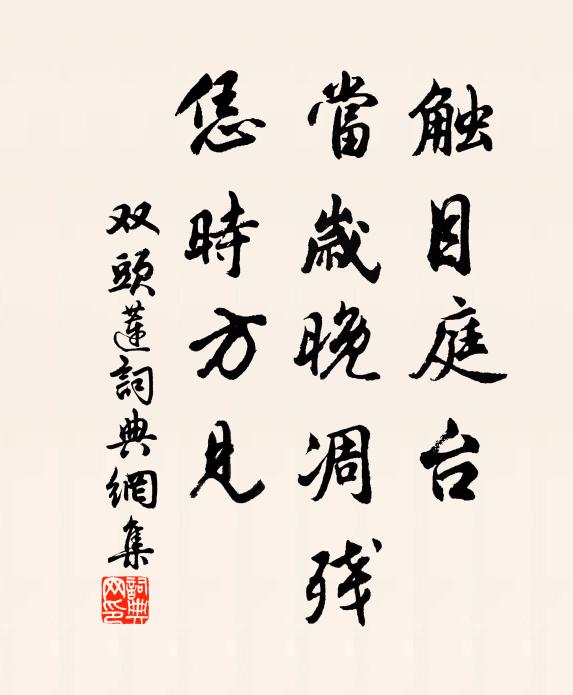 触目庭台
當歳晚凋残
恁時方見
双頭蓮詞典網集
詞典网印